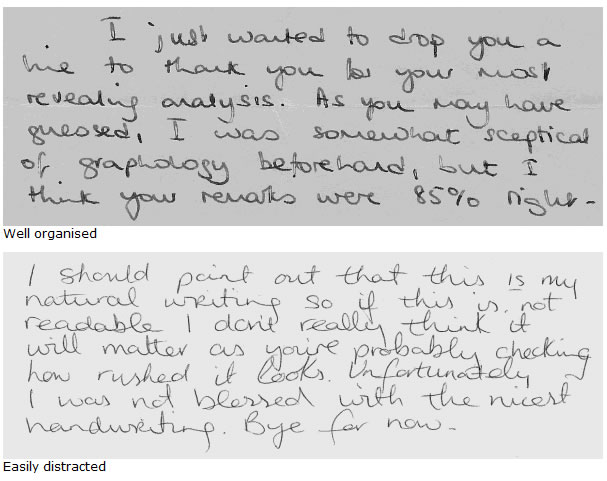 I just wanted to drop you a
line to thank you for your most
revealing analysis. As you may have
guessed, I was somewhat sceptical
of graphology beforehand, but I
think your remarks were 85% right-
Well organised
I should point out that this is my
natural writing so if this is not
readable I don't really think it
will matter as you're probably checking
how rushed it looks. Unfortunately
I was not blessed with the nicest
handwriting. Bye for now-
Easily distracted